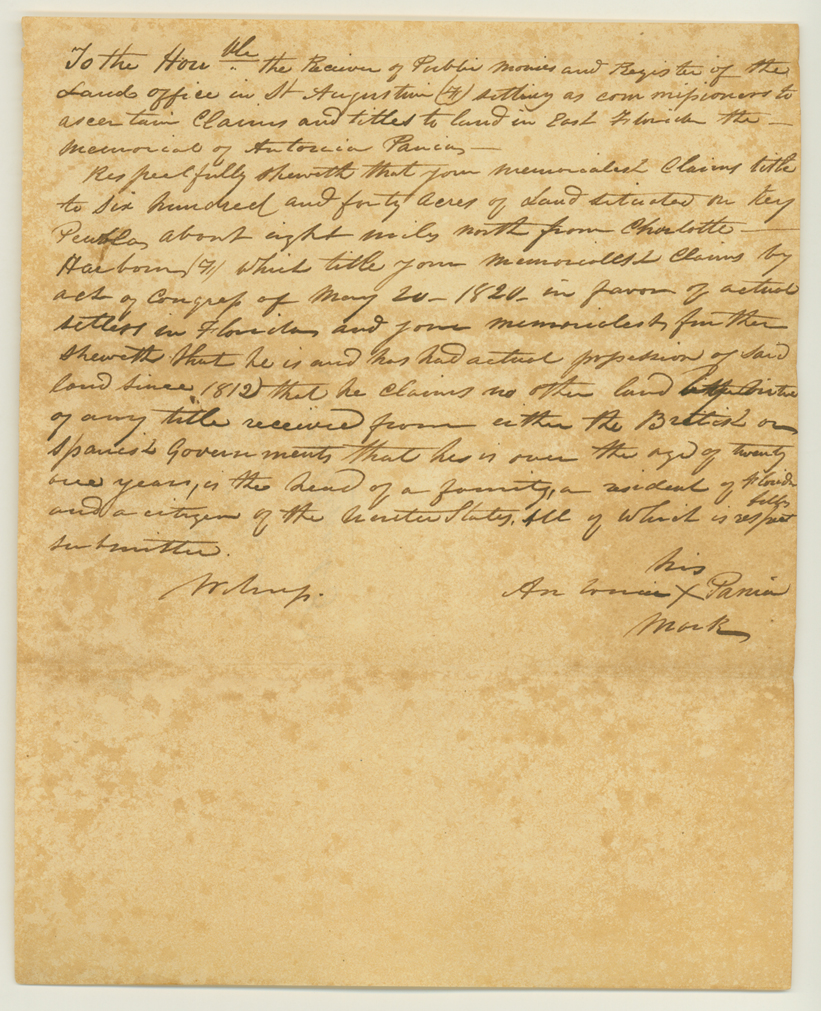 To the Hon ble the Reciever of Public Monies and Register of the
Land office in St Augustin (F) setting as commisioners to
ascertain Claims and titles to land in East Florida the —
Memorial of Antonia Pancas —
Respectfully sheweth that your memorialest Claims title
to Six hundred and forty Acres of Land situated on Key
about eight miles north from Charlotte —
Harbour, (F) which title your memorialest Claims by
act of Congress of May 20 - 1820 - in favor of actual
settlers in Florida, and your memorialests further
sheweth that he is and has had actual possession of said
land since 1812) that he claims no other land by virtue
of any title received from either the British or
Spanish Governments that he is over the age of twenty
one years, is the head of a family, a resident of Florida
and a citizen of the United States. All of which is respect
fully
submitted.
his
X
Mark